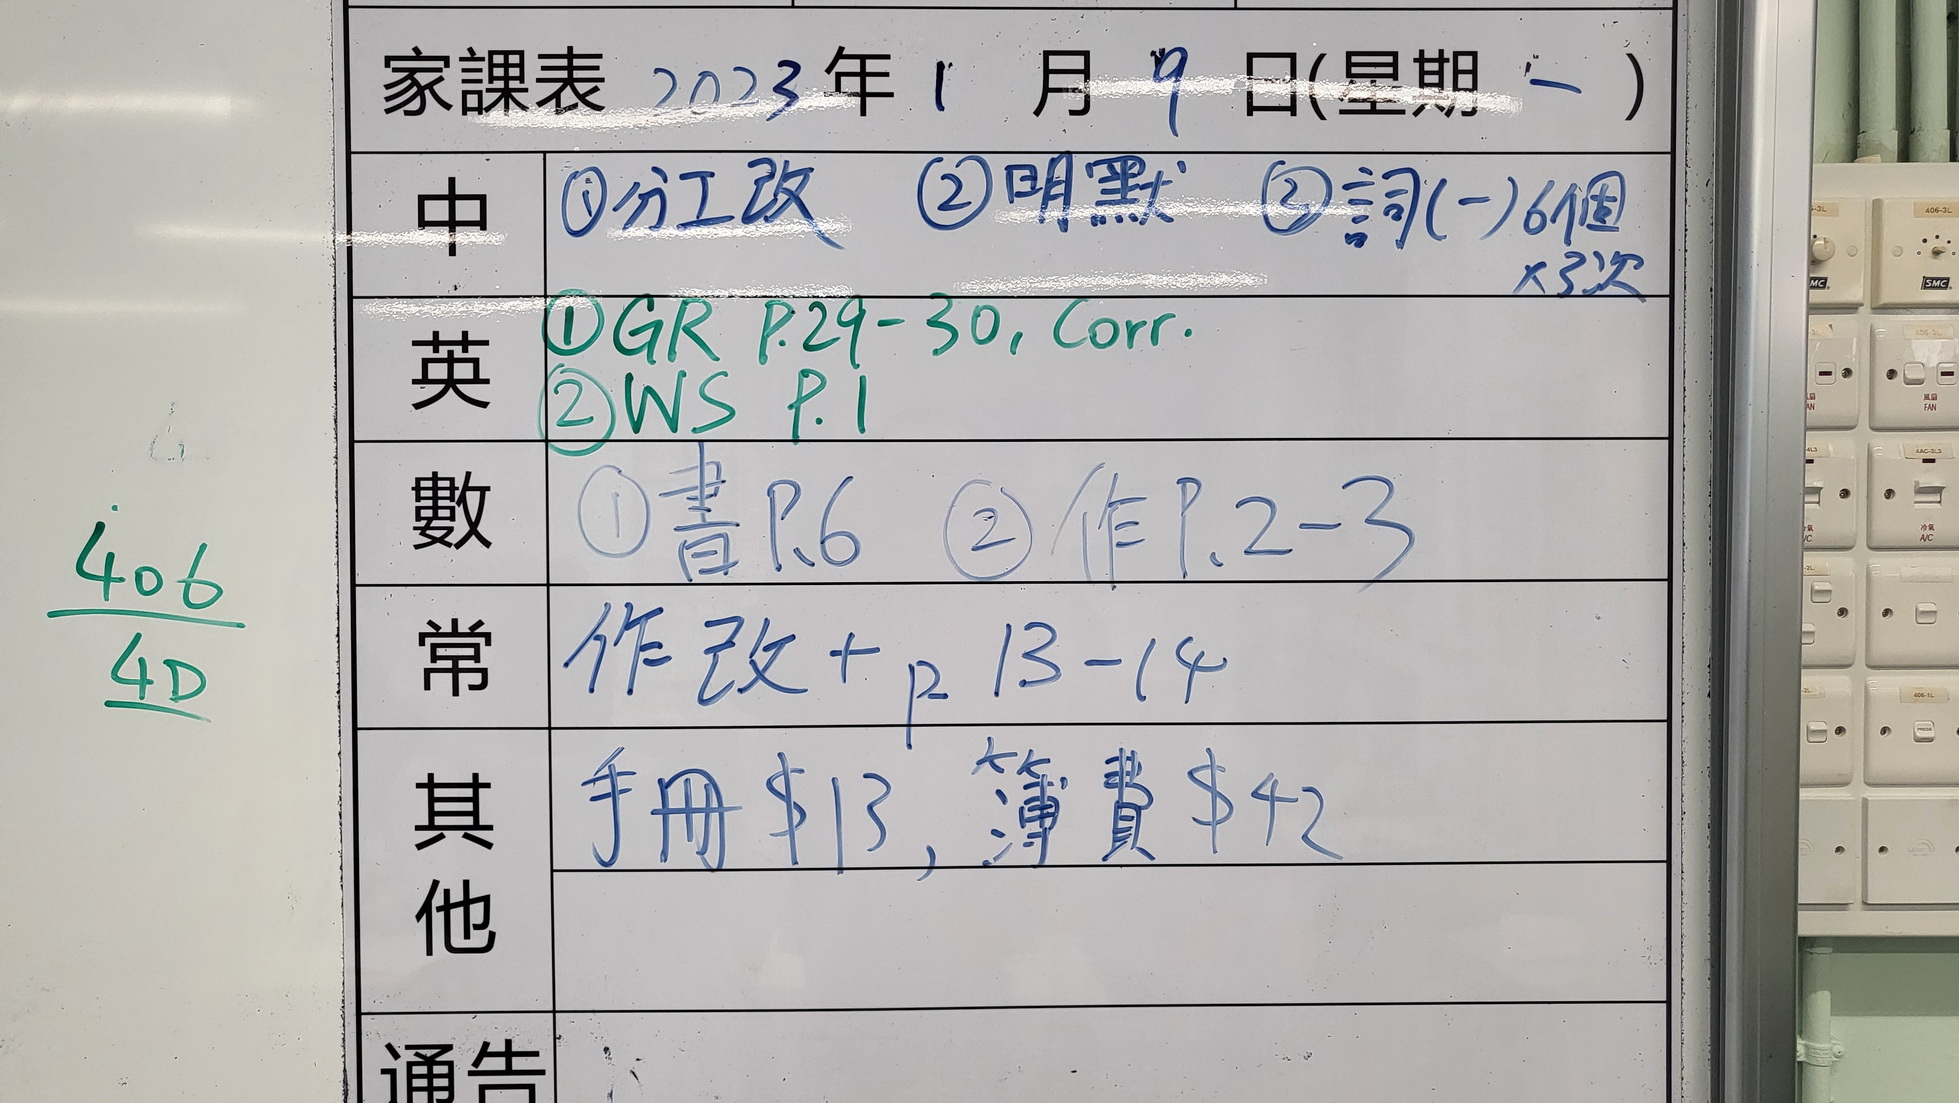 家課表 2023 年 1 月 9 日(星期 一 )
中 ①分工改 ②明默 ②詞(一)6個
×3次
英 ①GR P.29-30, Corr.
②WS P.1
數 ①書P.6 ②作P.2-3
常 作改+p 13-14
其他 手冊$13, 簿費$42
通告
406
4D
406-3L
SMC
SMC
風扇
FAN
冷氣
A/C
406-1L